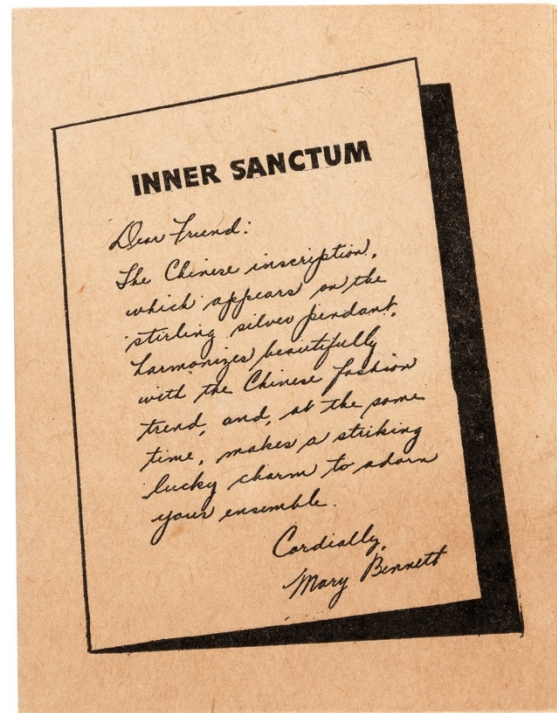 INNER SANCTUM
Dear Friend:
The Chinese inscription,
which appears on the
stirling silver pendant,
harmonizes beautifully
with the Chinese fashion
trend, and, at the same
time, makes a striking
lucky charm to adorn
your ensemble.
Cordially,
Mary Bennett